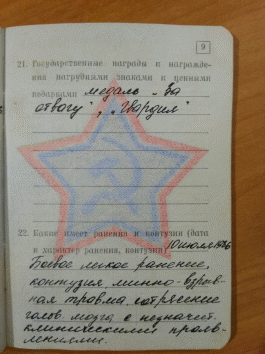 9
21. Государственные награды и награжде-
ния нагрудными знаками и ценными
подарками медаль „За
отвагу", „Гвардия"
22. Какие имеет ранения и контузии (дата
и характер ранения, контузии) 10 июля 1986
Боевое легкое ранение,
контузия, минно-взрыв-
ная травма, сотрясение
голов. мозга с незначит.
клиническими прояв-
лениями.